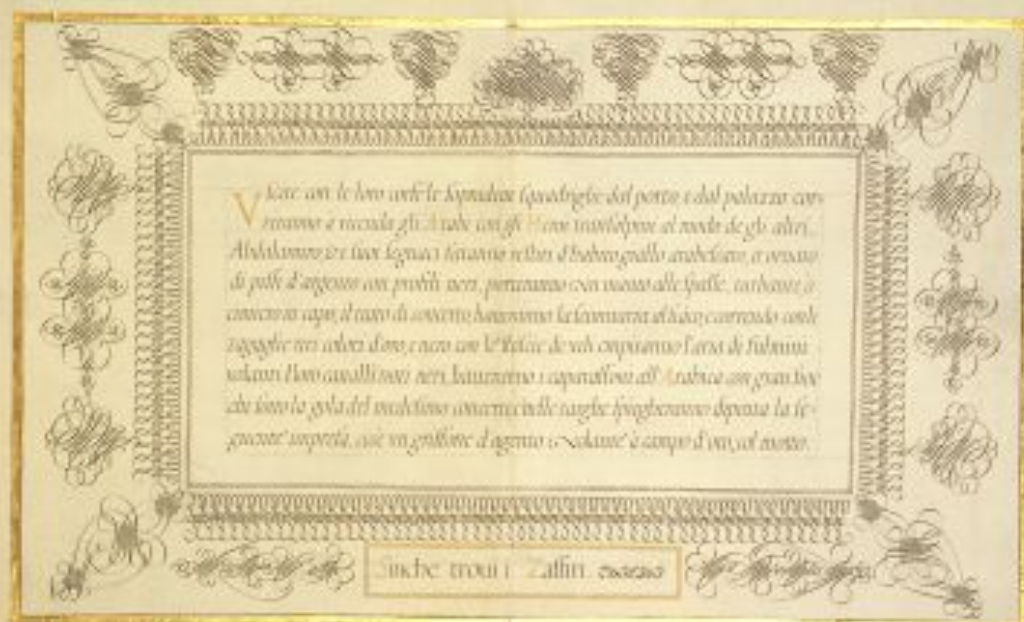 con le loro corse le sopradette squadriglie dal porto e dal palazzo cor-
reranno a vicenda gli Arabi con gli al modo de gli altri.
Abdalamiro & i suoi seguaci saranno vestiti d'habito giallo arabescato, et ornato
di pelli d'argento con profili neri, porteranno un manto alle spalle, turbante, e
cimiero in capo, il tutto di concerto, haueranno la scimitarra al fianco, e correndo con le
zagaglie tre colori d'oro, e nero con le de empiranno l'aria di fulmini
volanti. I loro caualli mori neri, haueranno i caparassoni all'Arabica con gran
che sotto la gola del medesimo concerto, e nelle targhe spiegheranno dipenta la se-
guente impresa, cioè un griffone d'argento volante a campo d'oro, col motto.
Sinche troui i Zaffiri.